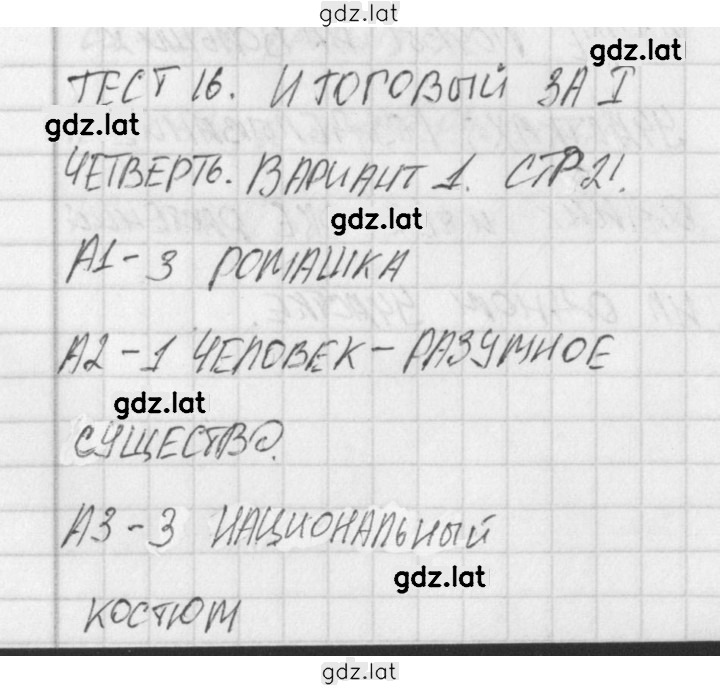 gdz.lat
gdz.lat
ТЕСТ 16. ИТОГОВЫЙ ЗА I
gdz.lat
ЧЕТВЕРТЬ. ВАРИАНТ 1. СТР21.
gdz.lat
А1-3 РОМАШКА
А2-1 ЧЕЛОВЕК-РАЗУМНОЕ
gdz.lat
СУЩЕСТВО.
А3-3 НАЦИОНАЛЬНЫЙ
gdz.lat
КОСТЮМ
gdz.lat